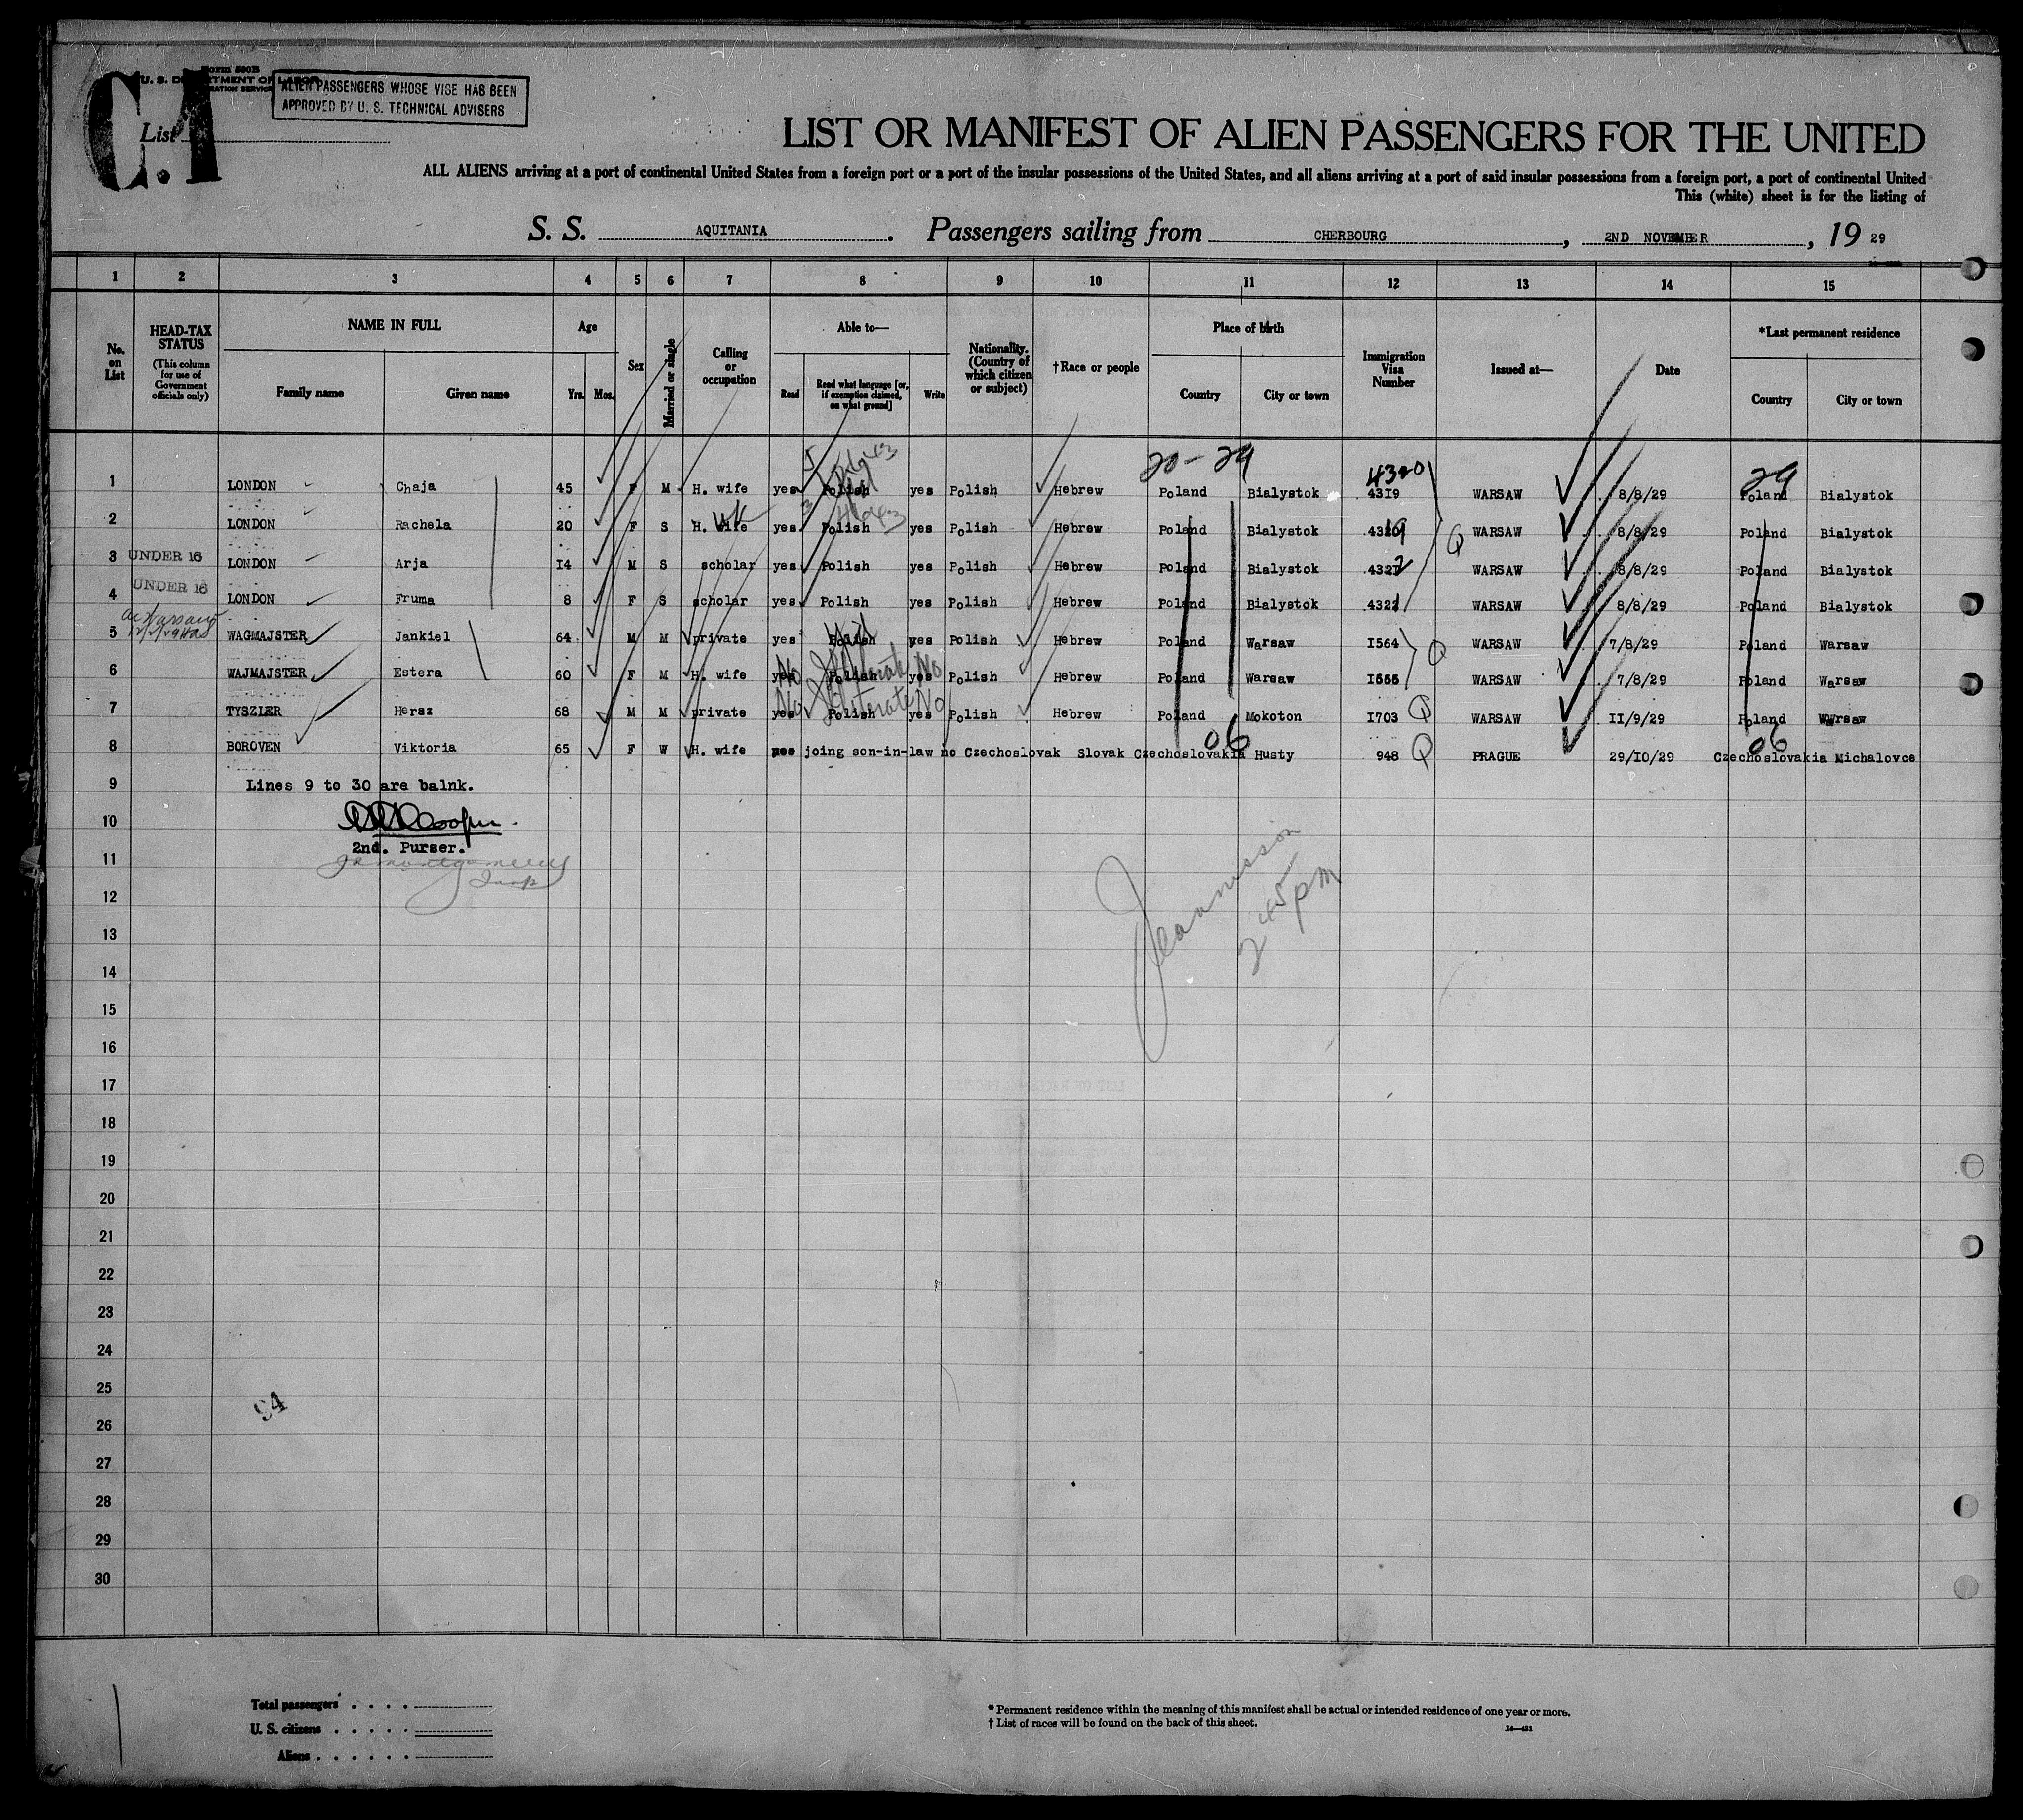 Form 500B
U. S. DEPARTMENT OF LABOR
ALIEN PASSENGERS WHOSE VISE HAS BEEN
APPROVED BY U. S. TECHNICAL ADVISERS
C.1
List
LIST OR MANIFEST OF ALIEN PASSENGERS FOR THE UNITED
ALL ALIENS arriving at a port of continental United States from a foreign port or a port of the insular possessions of the United States, and all aliens arriving at a port of said insular possessions from a foreign port, a port of continental United
This (white) sheet is for the listing of
S. S. AQUITANIA. Passengers sailing from CHERBOURG, 2ND NOVEMBER, 19 29
1 2 3 4 5 6 7 8 9 10 11 12 13 14 15
No. on List
HEAD-TAX STATUS
(This column for use of Government officials only)
NAME IN FULL
Family name Given name
Age
Yrs. Mos.
Sex
Married or single
Calling or occupation
Able to—
Read Read what language [or, if exemption claimed, on what ground] Write
Nationality. (Country of which citizen or subject)
†Race or people
Place of birth
Country City or town
Immigration Visa Number
Issued at—
Date
*Last permanent residence
Country City or town
20-29 4320 29
1 LONDON Chaja 45 F M H. wife yes Polish yes Polish Hebrew Poland Bialystok 4319 WARSAW 8/8/29 Poland Bialystok
2 LONDON Rachela 20 F S H. wife yes Polish yes Polish Hebrew Poland Bialystok 4319 WARSAW 8/8/29 Poland Bialystok
3 UNDER 16 LONDON Arja 14 M S scholar yes Polish yes Polish Hebrew Poland Bialystok 4322 WARSAW 8/8/29 Poland Bialystok
4 UNDER 16 LONDON Fruma 8 F S scholar yes Polish yes Polish Hebrew Poland Bialystok 4321 WARSAW 8/8/29 Poland Bialystok
5 WAGMAJSTER Jankiel 64 M M private yes Polish yes Polish Hebrew Poland Warsaw I564 Q WARSAW 7/8/29 Poland Warsaw
6 WAJMAJSTER Estera 60 F M H. wife yes No Polish Illiterate yes No Polish Hebrew Poland Warsaw I565 WARSAW 7/8/29 Poland Warsaw
7 TYSZLER Hersz 68 M M private yes No Polish Illiterate yes No Polish Hebrew Poland Mokoton I703 Q WARSAW II/9/29 Poland Warsaw
06 06
8 BOROVEN Viktoria 65 F W H. wife joing son-in-law no Czechoslovak Slovak Czechoslovakia Husty 948 Q PRAGUE 29/IO/29 Czechoslovakia Michalovce
9 Lines 9 to 30 are balnk.
10
2nd. Purser.
11
12
13
2 45 pm
14
15
16
17
18
19
20
21
22
23
24
25
94
26
27
28
29
30
Total passengers
U. S. citizens
Aliens
* Permanent residence within the meaning of this manifest shall be actual or intended residence of one year or more.
† List of races will be found on the back of this sheet.